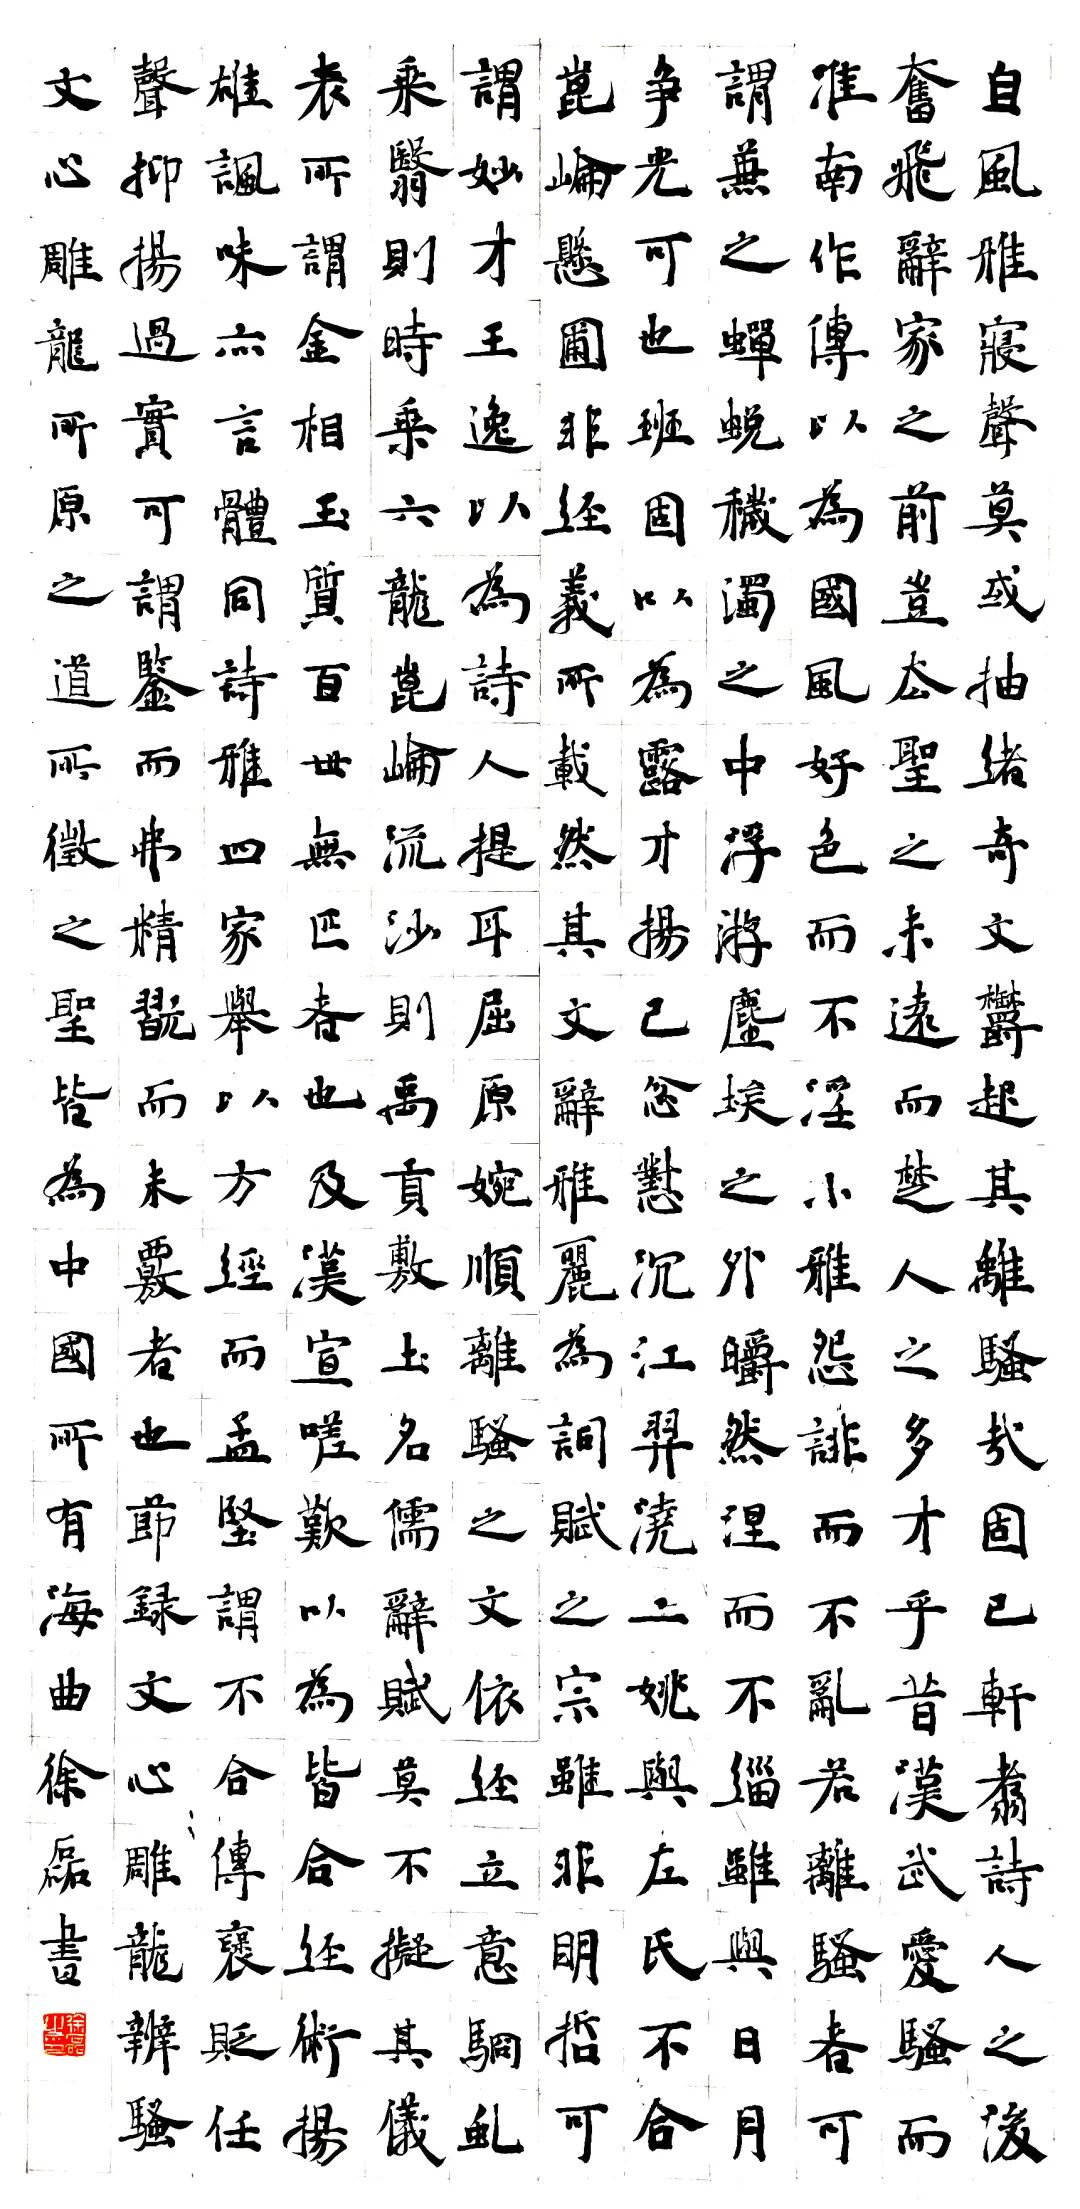 自風雅寢聲莫或抽緒奇文鬱起其離騷哉固已軒翥詩人之後
奮飛辭家之前豈去聖之未遠而楚人之多才乎昔漢武愛騷而
淮南作傳以為國風好色而不淫小雅怨誹而不亂若離騷者可
謂兼之蟬蛻穢濁之中浮游塵埃之外皭然涅而不緇雖與日月
争光可也班固以為露才揚己忿懟沉江羿澆二姚與左氏不合
崑崙懸圃非經義所載然其文辭雅麗為詞賦之宗雖非明哲可
謂妙才王逸以為詩人提耳屈原婉順離騷之文依經立意駟虬
乘翳則時乘六龍崑崙流沙則禹貢敷土名儒辭賦莫不擬其儀
表所謂金相玉質百世無匹者也及漢宣嗟歎以為皆合經術揚
雄諷味亦言體同詩雅四家舉以方經而孟堅謂不合傳褒貶任
聲抑揚過實可謂鑒而弗精翫而未覈者也節録文心雕龍辨騷
文心雕龍所原之道所徵之聖皆為中國所有海曲徐磊書
徐磊之印